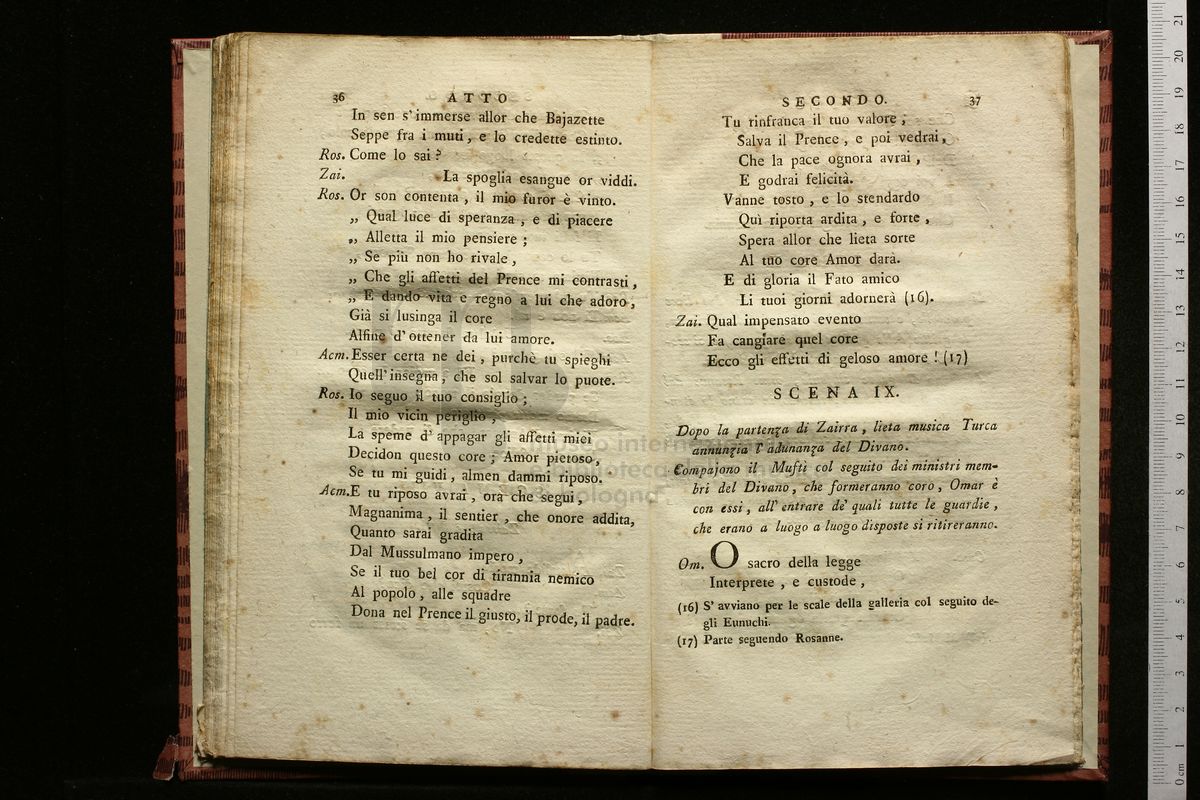 36 ATTO
In sen s'immerse allor che Bajazette
Seppe fra i muti, e lo credette estinto.
Ros. Come lo sai?
Zai. La spoglia esangue or viddi.
Ros. Or son contenta, il mio furor è vinto.
„ Qual luce di speranza, e di piacere
„ Alletta il mio pensiere;
„ Se più non ho rivale,
„ Che gli affetti del Prence mi contrasti,
„ E dando vita e regno a lui che adoro,
Già si lusinga il core
Alfine d'ottener da lui amore.
Acm. Esser certa ne dei, purchè tu spieghi
Quell'insegna, che sol salvar lo puote.
Ros. Io seguo il tuo consiglio;
Il mio vicin periglio,
La speme d'appagar gli affetti miei
Decidon questo core; Amor pietoso,
Se tu mi guidi, almen dammi riposo.
Acm. E tu riposo avrai, ora che segui,
Magnanima, il sentier, che onore addita,
Quanto sarai gradita
Dal Mussulmano impero,
Se il tuo bel cor di tirannia nemico
Al popolo, alle squadre
Dona nel Prence il giusto, il prode, il padre.
SECONDO. 37
Tu rinfranca il tuo valore,
Salva il Prence, e poi vedrai,
Che la pace ognora avrai,
E godrai felicità.
Vanne tosto, e lo stendardo
Quì riporta ardita, e forte,
Spera allor che lieta sorte
Al tuo core Amor darà.
E di gloria il Fato amico
Li tuoi giorni adornerà (16).
Zai. Qual impensato evento
Fa cangiare quel core
Ecco gli effetti di geloso amore! (17)
SCENA IX.
Dopo la partenza di Zairra, lieta musica Turca
annunzia l'adunanza del Divano.
Compajono il Muftì col seguito dei ministri mem-
bri del Divano, che formeranno coro, Omar è
con essi, all'entrare de' quali tutte le guardie,
che erano a luogo a luogo disposte si ritireranno.
Om. O sacro della legge
Interprete, e custode,
(16) S'avviano per le scale della galleria col seguito de-
gli Eunuchi.
(17) Parte seguendo Rosanne.